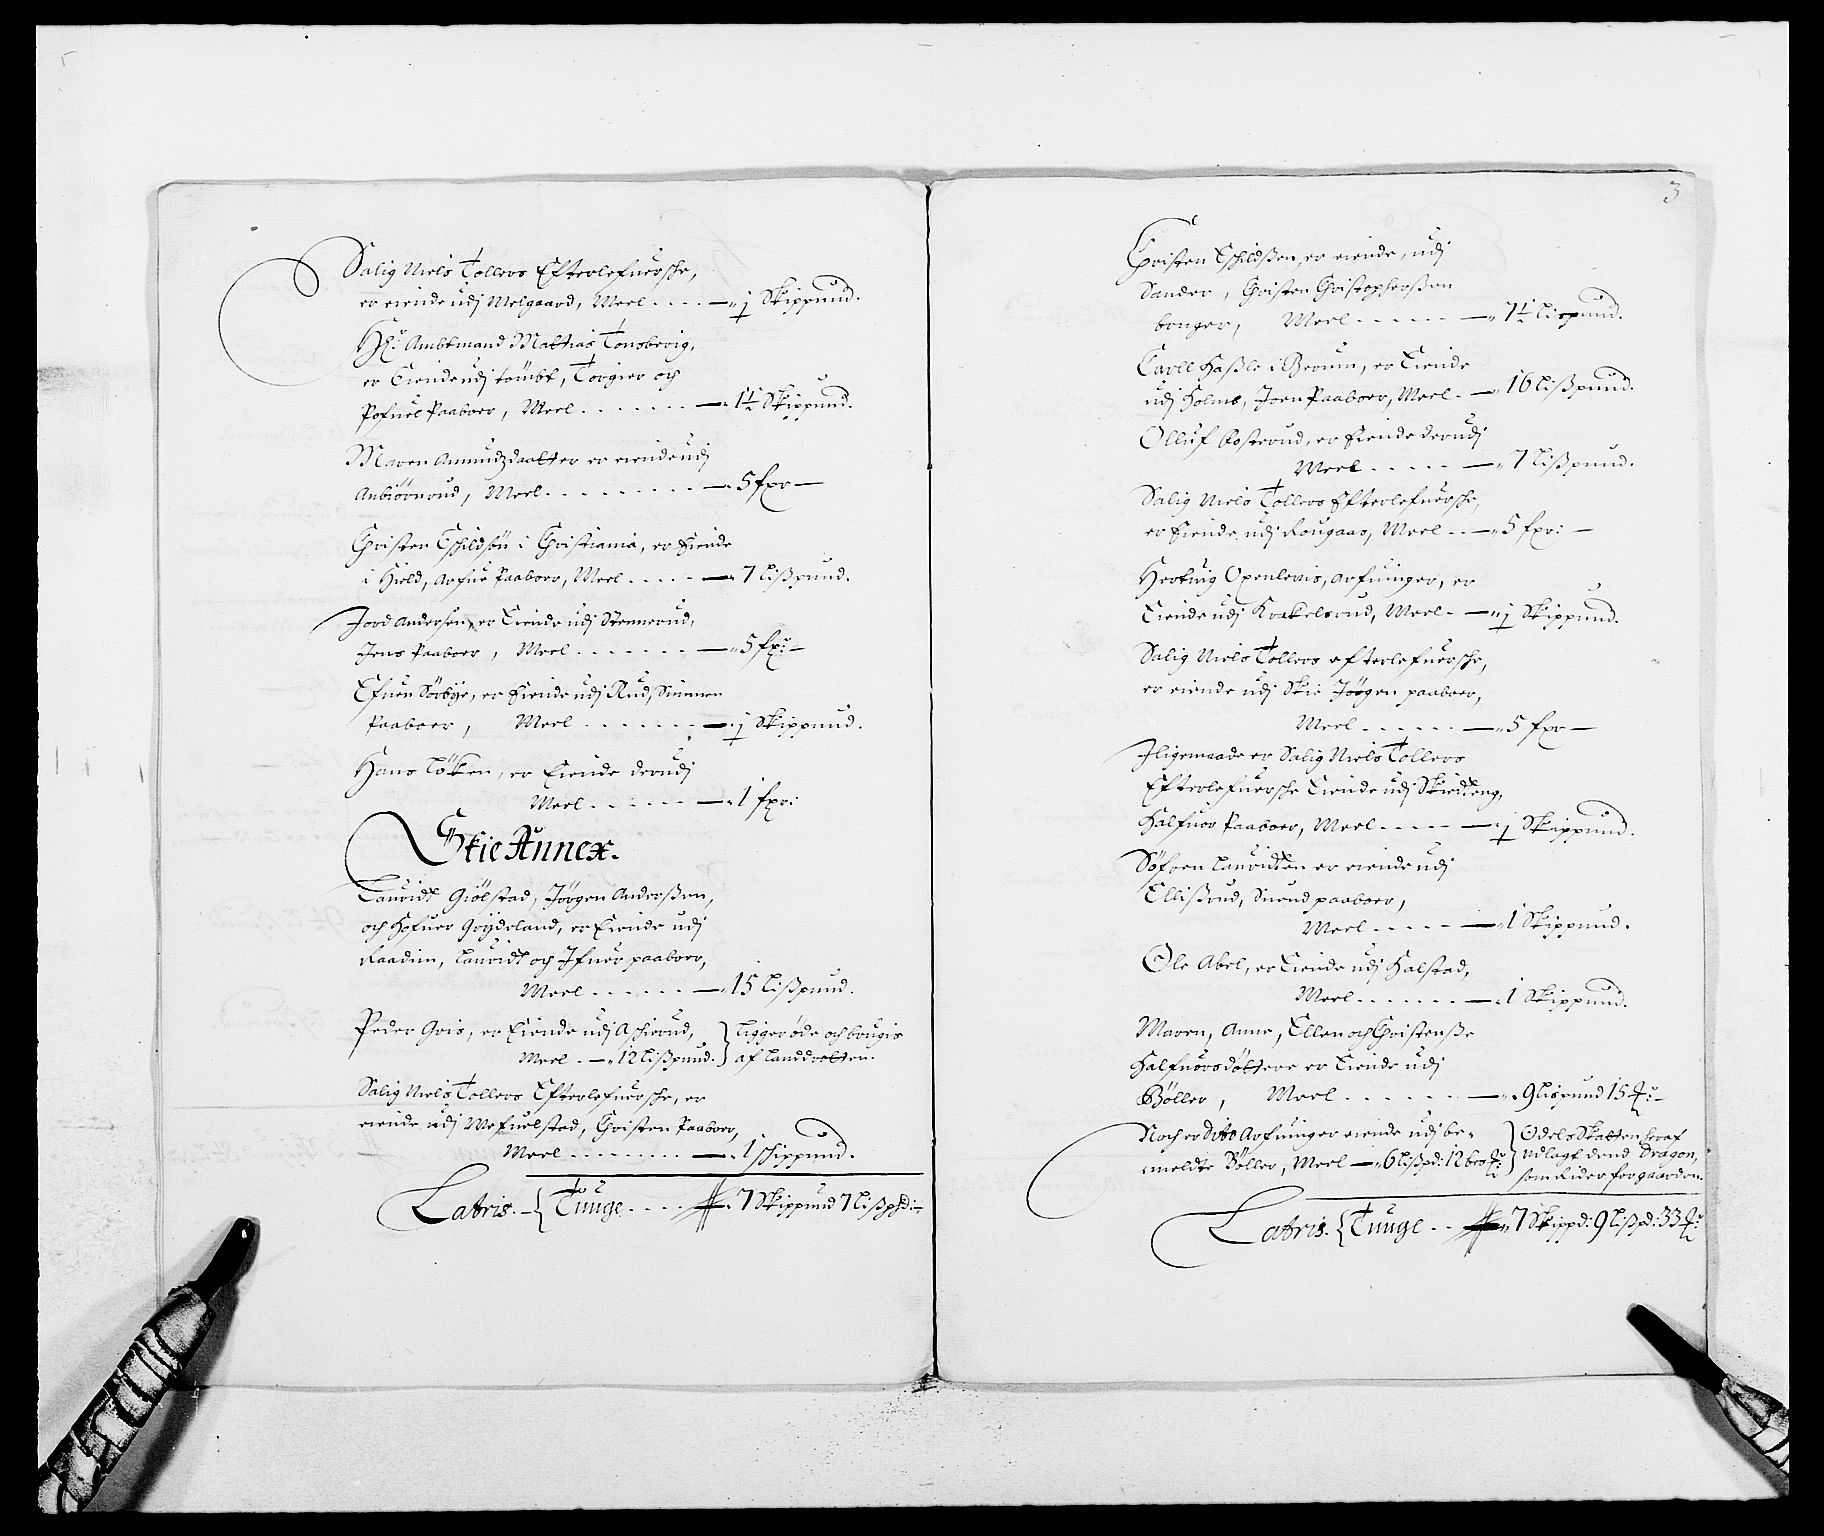 Salig Niels Tollers Efterlefuersche,
er eiende udj Melgaard, Meel . . . . — „ j Skippund.
Hr: Ambtmand Mattias Tonsberig,
er Eiende udj tömbt, Torgier och
Pofuel Paaboer, Meel . . . . . . . — „ 1½ Skippund.
Maren Amundzdaatter er eiende udj
Anbiörnrud, Meel . . . . . . . . . — „ 5 fpr —
Christen Eschildsön i Christiania, er Eiende
i Hield, Arfue Paaboer, Meel . . . . . — „ 7 Lißpund.
Jord Andersen, er Eiende udj Stennerud,
Jens Paaboer, Meel . . . . . . . — „ 5 fpr: —
Efuen Sörbye, er Eiende udj Rud, Simmen
Paaboer, Meel . . . . . . . — „ j Skippund.
Hans Löken, er Eiende derudj
Meel . . . . . . — „ 1 fpr:
Skie Annex.
Lauridt Giölstad, Jörgen Anderßen,
och Hofuer Grydeland, er Eiende udj
Raadim, Lauridt och Ifuer paaboer,
Meel . . . . . . — „ 15 Lißpund.
Peder Gris, er Eiende udj Aschierud, } Ligger öde och brugis
Meel . — „ 12 Lißpund. } af Landdrotten.
Salig Niels Tollers Efterlefuersche, er
eiende udj Mefuelstad, Christen Paaboer,
Meel . . . . . . . . . — „ 1 schippund.
Latris. — { Tunge . . . . „ 7 Skippund 7 Lißpd: —
3
Christen Eschildßen, er eiende, udj
Sander, Christen Christopherßen
bruger, Meel . . . . . . — „ 7½ Lispund.
Carll Haßle i Berum, er Eiende
udj Holme, Joen Paaboer, Meel . — „ 16 Lißpund.
Olluf Rosterud, er Eiende derudj
Meel . . . . . — „ 7 Lißpund.
Salig Niels Tollers Efterlefuersche,
er Eiende udj Rougaas, Meel . . — „ 5 fpr: —
Hertuig Openlevis, Arfuinger, er
Eiende udj Krakelsrud, Meel . — „ j Skippund.
Salig Niels Tollers efterlefuersche,
er eiende udj Skie Jörgen paaboer,
Meel . . . . . . — „ 5 fpr —
Jligemaade er Salig Niels Tollers
Efterlefuersche Eiende udj Skieteng,
Halfuor Paaboer, Meel . . . . . — „ j Skippund.
Söfren Lauridten er eiende udj
Ellißrud, Suend paaboer,
Meel . . . . . — „ 1 Skippund.
Ole Abel, er Eiende udj Halstad,
Meel . . . . . . . — „ 1 Skippund.
Maren, Anne, Ellen och Christenße
Halfuorsdöttere er Eiende udj
Böller, Meel . . . . . . — „ 9 Lispund 15 ℔: —
Noch er Dito Arfuinger eiende udj be- } Odels Skatten heraf
meldte Böller, Meel — „ 6 Lißpd: 12 ℔: } udlagt dend Dragon,
som Rider for gaarden.
Latris. { Tunge . . „ 7 Skippd: 9 Lißpd: 33 ℔: